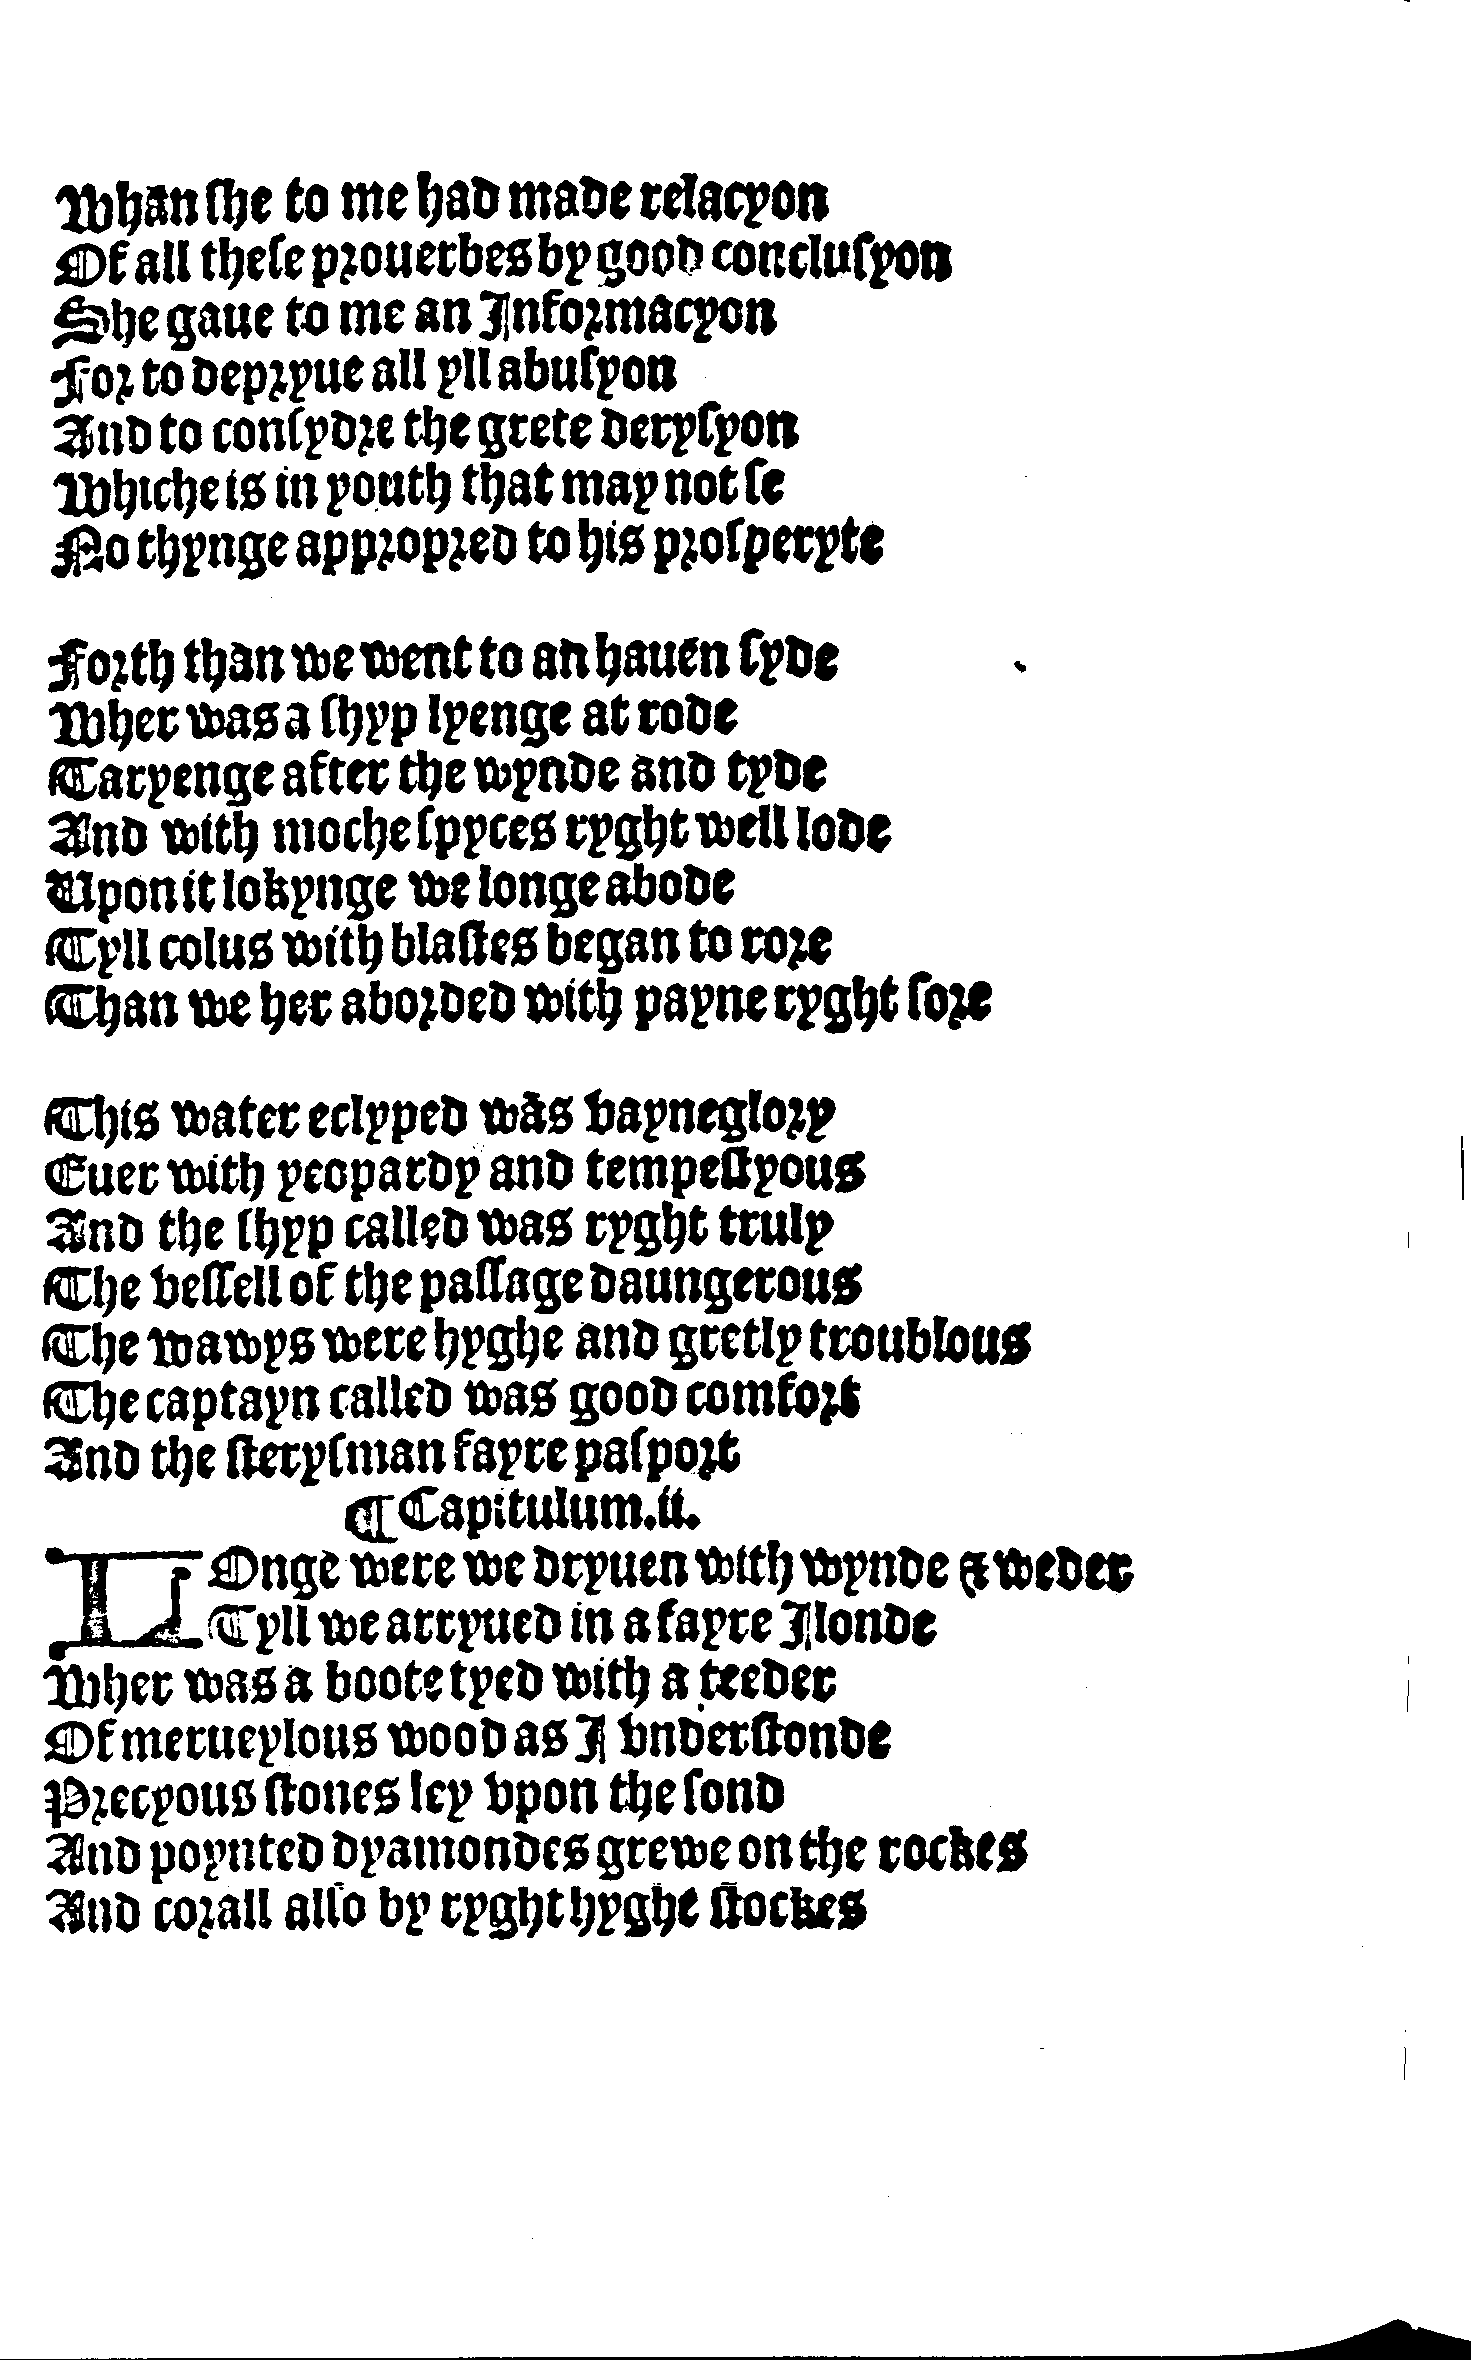 Whan ſhe to me had made relacyon
Of all theſe prouerbes by good concluſyon
She gaue to me an Informacyon
For to depryue all yll abuſyon
And to conſydre the grete deryſyon
Whiche is in youth that may not ſe
No thynge appropred to his proſperyte
Forth than we went to an hauen ſyde
Wher was a ſhyp lyenge at rode
Taryenge after the wynde and tyde
And with moche ſpyces ryght well lode
Upon it lokynge we longe abode
Tyll colus with blaſtes began to rore
Than we her aborded with payne ryght ſore
This water eclyped was vayneglory
Euer with yeopardy and tempeſtyous
And the ſhyp called was ryght truly
The veſſell of the paſſage daungerous
The wawys were hyghe and gretly troublous
The captayn called was good comfort
And the ſteryſman fayre paſport
¶ Capitulum.ii.
LOnge were we dryuen with wynde & weder
Tyll we arryued in a fayre Ilonde
Wher was a boote tyed with a teeder
Of merueylous wood as I vnderſtonde
Precyous ſtones ley vpon the ſond
And poynted dyamondes grewe on the rockes
And corall alſo by ryght hyghe ſtockes